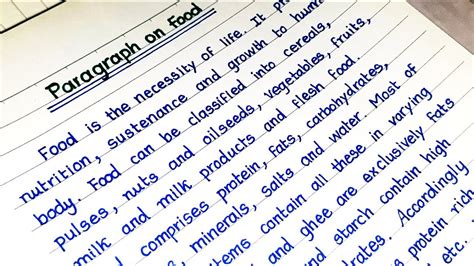 Paragraph on Food
Food is the necessity of life. It
nutrition, sustenance and growth to
body. Food can be classified into cereals,
pulses, nuts and oilseeds, vegetables, fruits,
milk and milk products and flesh food.
comprises protein, fats, carbohydrates,
minerals, salts and water. Most of
contain all these in varying
and ghee are exclusively fats
and starch contain high
Accordingly
protein
etc.